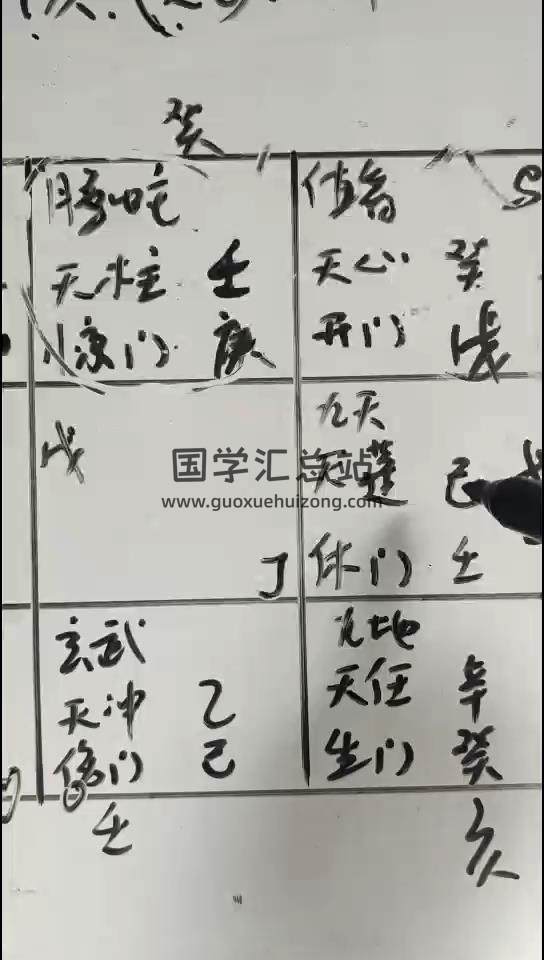 癸
腾蛇
天柱 壬
惊门 庚
值符
天心 癸
开门 戊
戊
九天
天蓬 己
丁 休门 壬
国学汇总站
www.guoxuehuizong.com
玄武
天冲 乙
伤门 己
九地
天任 辛
生门 癸
壬
亥